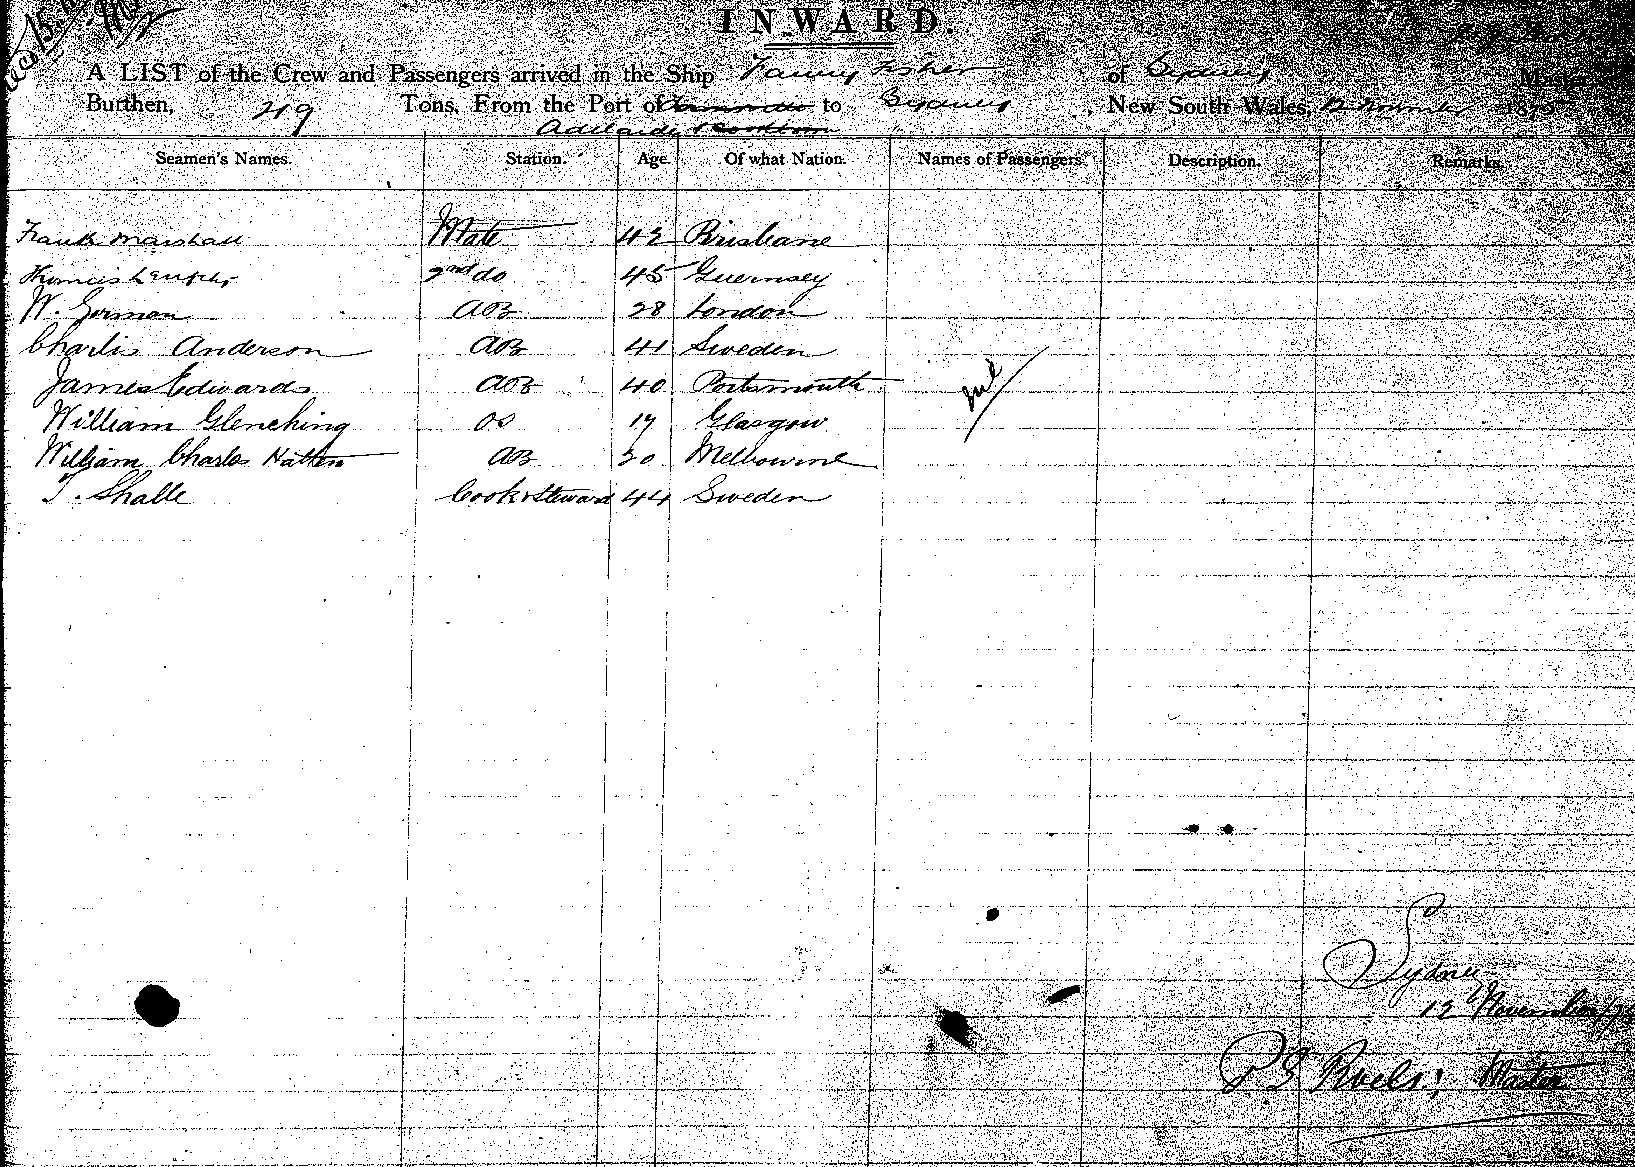 INWARD.
A LIST of the Crew and Passengers arrived in the Ship Fanny Fisher of Sydney Master
Burthen, Tons, From the Port of to Sydney, New South Wales,
Adelaide
Seamen's Names. Station. Age. Of what Nation. Names of Passengers. Description. Remarks.
Frank Marshall Mate 42 Brisbane
Thomas 2nd do 45 Guernsey
W. Gorman AB 28 London
Charlis Anderson AB 41 Sweden
James Edwards AB 40 Portsmouth nil
William Glenching OS 17 Glasgow
William Charles Hatten AB 20 Melbourne
T. Shalle Cook & Steward 44 Sweden
Sydney
12 November
Master